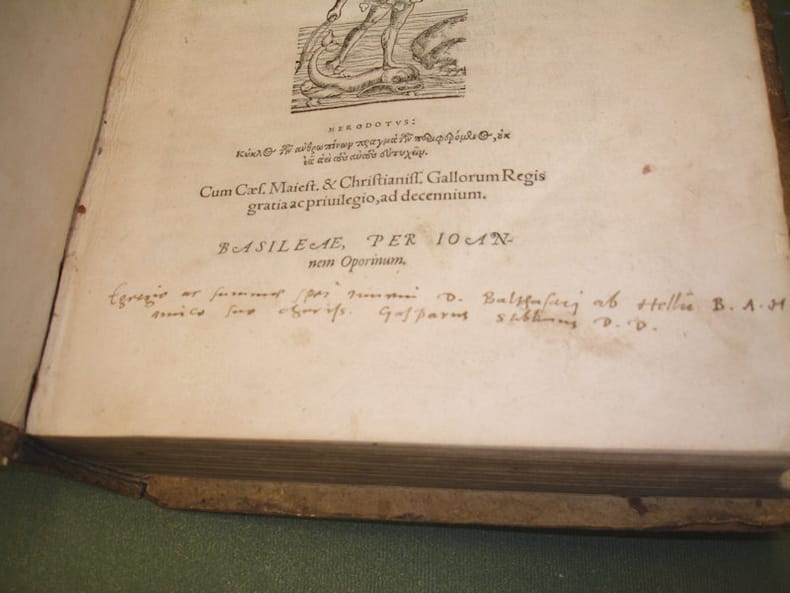 HERODOTVS:
Κύκλος τῶν ἀνθρωπίνων πραγμάτων περιφερόμενος, οὐκ
ἐᾷ ἀεὶ τοὺς αὐτοὺς εὐτυχεῖν.
Cum Cæs. Maiest. & Christianiss. Gallorum Regis
gratia ac priuilegio, ad decennium.
BASILEAE, PER IOAN-
nem Oporinum.
Egregio ac summae spei iuueni D. Balthasari ab B. A. H
amico suo chariss. Gasparus Stiblinus D. D.